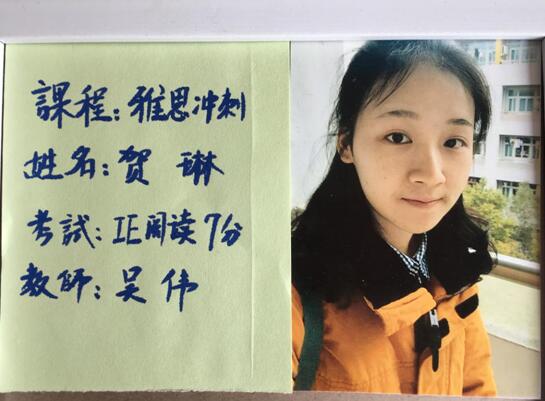 課程：雅思冲刺
姓名：贺 琳
考試：正阅读7分
教師：吴 伟